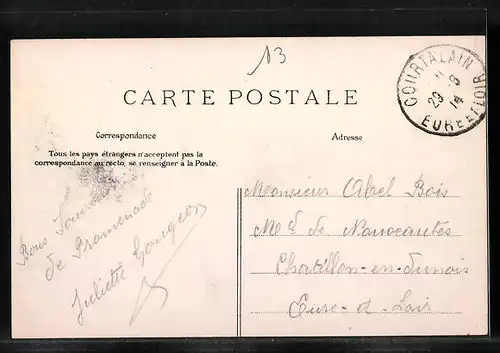 13
COURTALAIN
11
29 - 9
14
EURE ET LOIR
CARTE POSTALE
Correspondance
Adresse
Tous les pays étrangers n'acceptent pas la
correspondance au recto, se renseigner à la Poste.
Bons
de Promenade
Juliette
Monsieur Abel Bois
Md de Nouveautés
Chatillon-en-Dunois
Eure-&-Loir